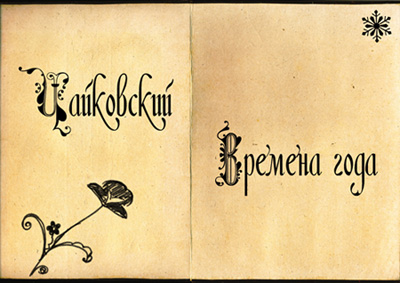 Чайковский
Времена года